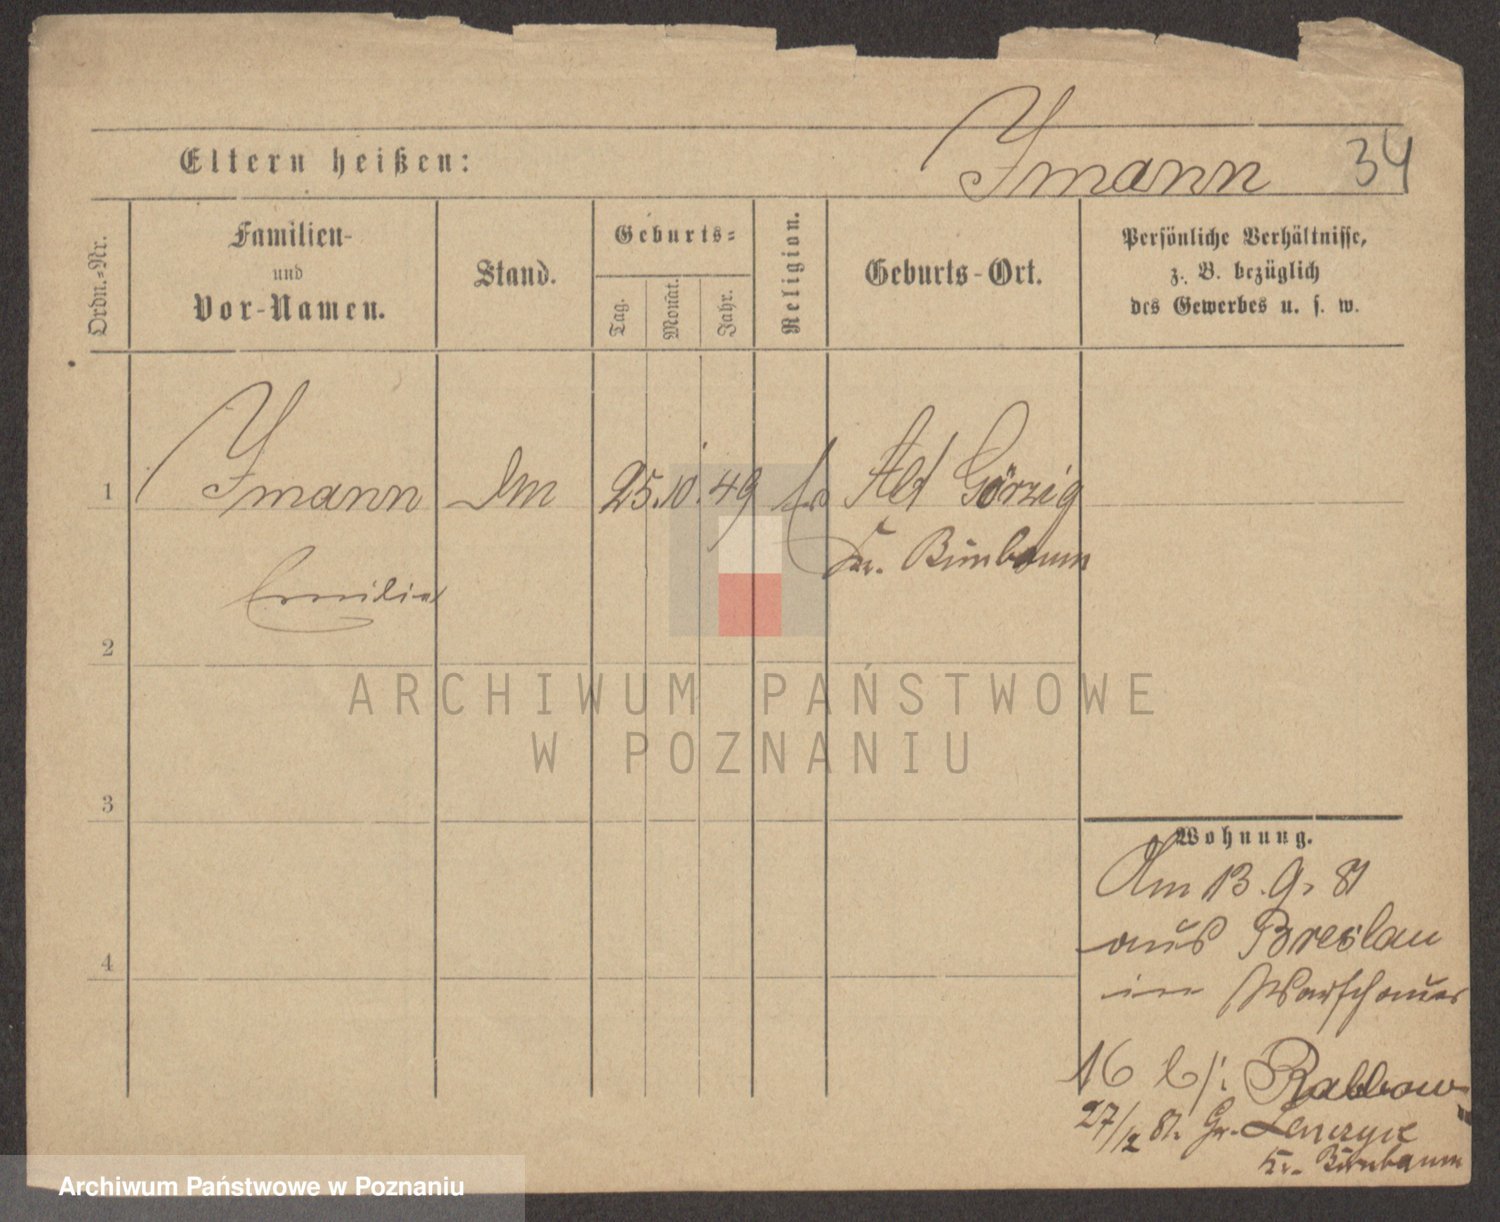 Ymann 34
Eltern heißen:
Ordn.-Nr.
Familien-
und
Vor-Namen.
Stand.
Geburts-
Tag.
Monat.
Jahr.
Religion.
Geburts-Ort.
Persönliche Verhältnisse,
z. B. bezüglich
des Gewerbes u. s. w.
1 Ymann 25. 10. 49 Alt Görzig
Emilie Kr. Birnbaum
2
3
4
Wohnung.
Am 13. 9. 81
aus Breslau
in Warschauer
16 b/:
27/12 81. Gr.
Kr. Birnbaum
ARCHIWUM PAŃSTWOWE
W POZNANIU
Archiwum Państwowe w Poznaniu